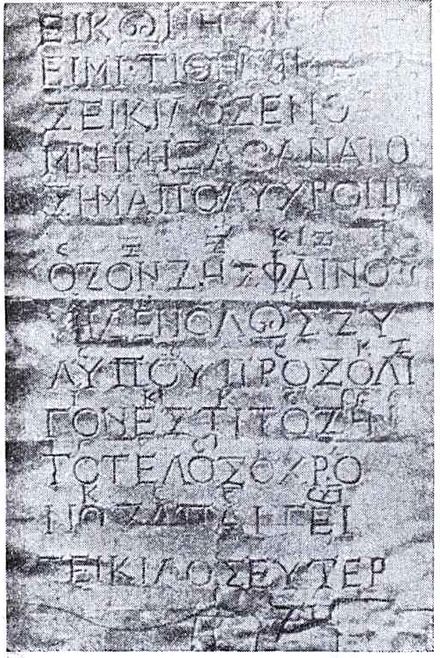 ΕΙΚΩΝ Η
ΕΙΜΙ· ΤΙΘΗΣΙ
ΣΕΙΚΙΛΟΣ ΕΝΘ
ΜΝΗΜΗΣ ΑΘΑΝΑΤΟ
ΣΗΜΑ ΠΟΛΥΧΡΟΝΙ
C Ζ Ζ ΚΙΖ Ι
ΟΣΟΝ ΖΗΣ ΦΑΙΝΟΥ
ΜΗΔΕΝ ΟΛΩΣ ΣΥ
ΛΥΠΟΥ ΠΡΟΣ ΟΛΙ
ΓΟΝ ΕΣΤΙ ΤΟ ΖΗΝ
ΤΟ ΤΕΛΟΣ Ο ΧΡΟ
ΝΟΣ ΑΠΑΙΤΕΙ
ΣΕΙΚΙΛΟΣ ΕΥΤΕΡ
ΖΗ